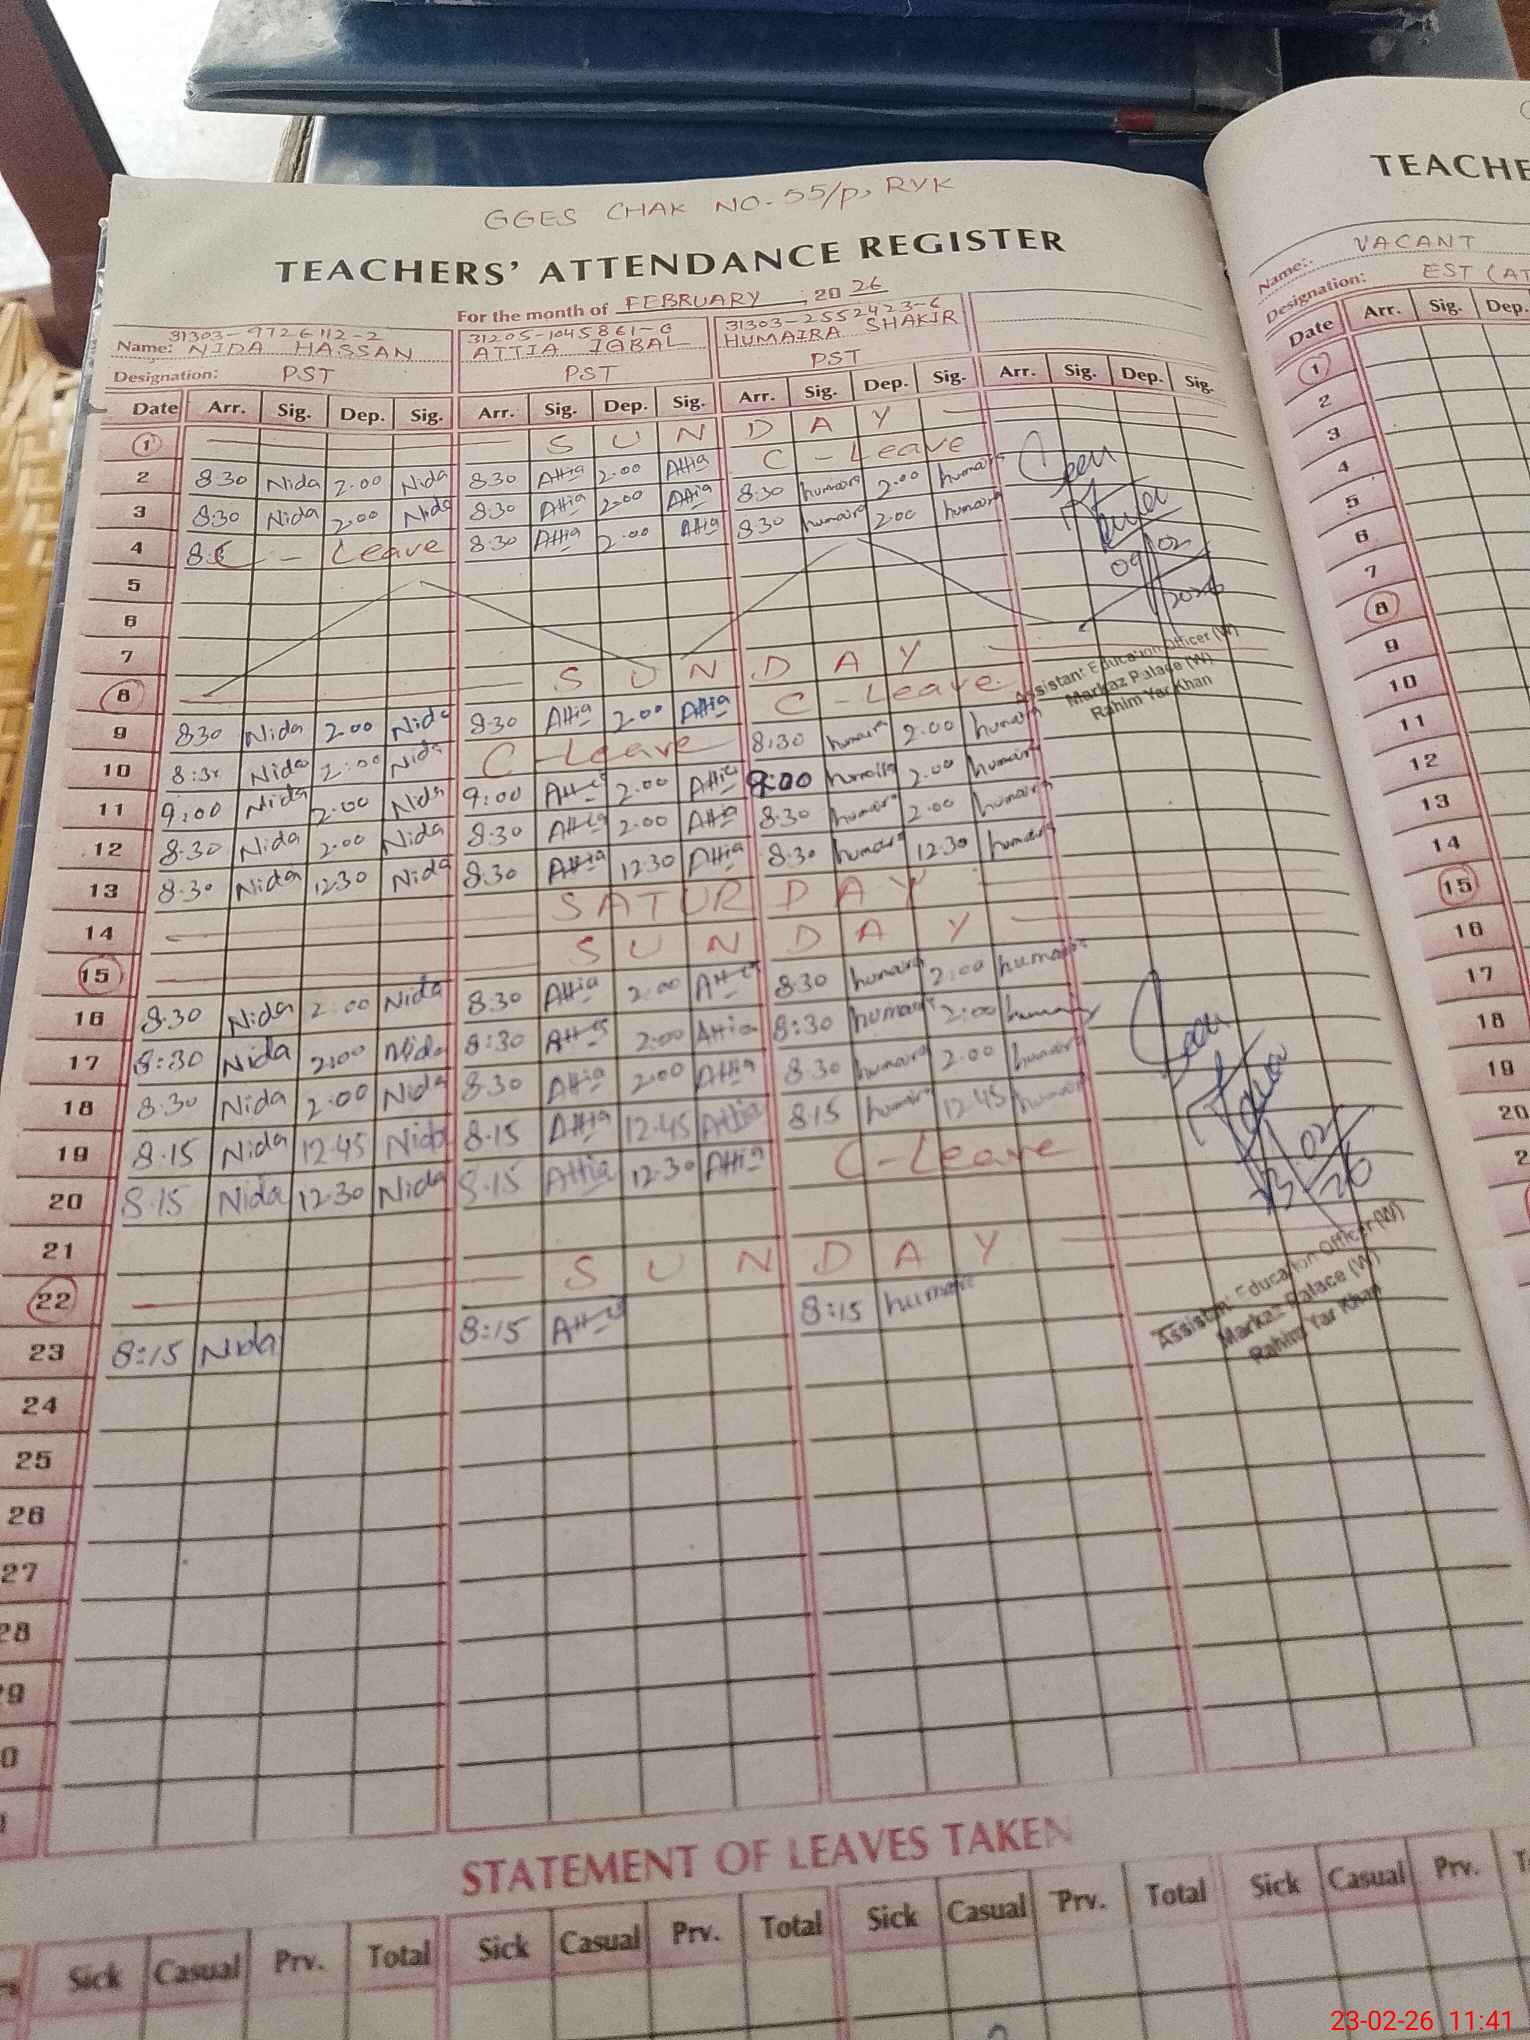 GGES CHAK NO. 55/P, RYK
TEACHERS' ATTENDANCE REGISTER
For the month of FEBRUARY, 20 26
31303-9726112-2 31205-1045861-0 31303-2552423-6
Name: NIDA HASSAN ATTIA IQBAL HUMAIRA SHAKIR
Designation: PST PST PST
Date Arr. Sig. Dep. Sig. Arr. Sig. Dep. Sig. Arr. Sig. Dep. Sig. Arr. Sig. Dep. Sig.
1 SUNDAY
2 8:30 Nida 2.00 Nida 8.30 Attia 2.00 Attia C-Leave
3 8:30 Nida 2.00 Nida 8.30 Attia 2.00 Attia 8:30 humaira 2.00 humaira
4 C - Leave 8.30 Attia 2.00 Attia 8.30 humaira 2.00 humaira
5
6
7
8 SUNDAY
9 8:30 Nida 2.00 Nida 8.30 Attia 2.00 Attia C-Leave
10 8:30 Nida 2:00 Nida C-Leave 8:30 humaira 2.00 humaira
11 9:00 Nida 2.00 Nida 9:00 Attia 2.00 Attia 9:00 humaira 2.00 humaira
12 8.30 Nida 2.00 Nida 8.30 Attia 2.00 Attia 8.30 humaira 2.00 humaira
13 8.30 Nida 12.30 Nida 8.30 Attia 12.30 Attia 8.30 humaira 12.30 humaira
14 SATURDAY
15 SUNDAY
16 8.30 Nida 2:00 Nida 8.30 Attia 2:00 Attia 8.30 humaira 2:00 humaira
17 8:30 Nida 2:00 Nida 8:30 Attia 2:00 Attia 8:30 humaira 2:00 humaira
18 8.30 Nida 2:00 Nida 8.30 Attia 2:00 Attia 8.30 humaira 2.00 humaira
19 8.15 Nida 12.45 Nida 8.15 Attia 12.45 Attia 8.15 humaira 12.45 humaira
20 8.15 Nida 12.30 Nida 8.15 Attia 12.30 Attia C-Leave
21
22 SUNDAY
23 8:15 Nida 8:15 Attia 8:15 humaira
24
25
26
27
28
Seen
09/02/2026
Assistant Education Officer (W)
Markaz Palace (W)
Rahim Yar Khan
Seen
23/02/26
Assistant Education Officer (W)
Markaz Palace (W)
Rahim Yar Khan
STATEMENT OF LEAVES TAKEN
Sick Casual Prv. Total Sick Casual Prv. Total Sick Casual Prv. Total Sick Casual Prv.
TEACHE
Name: VACANT
Designation: EST (AT
Date Arr. Sig. Dep.
1
2
3
4
5
6
7
8
9
10
11
12
13
14
15
16
17
18
19
20
23-02-26 11:41